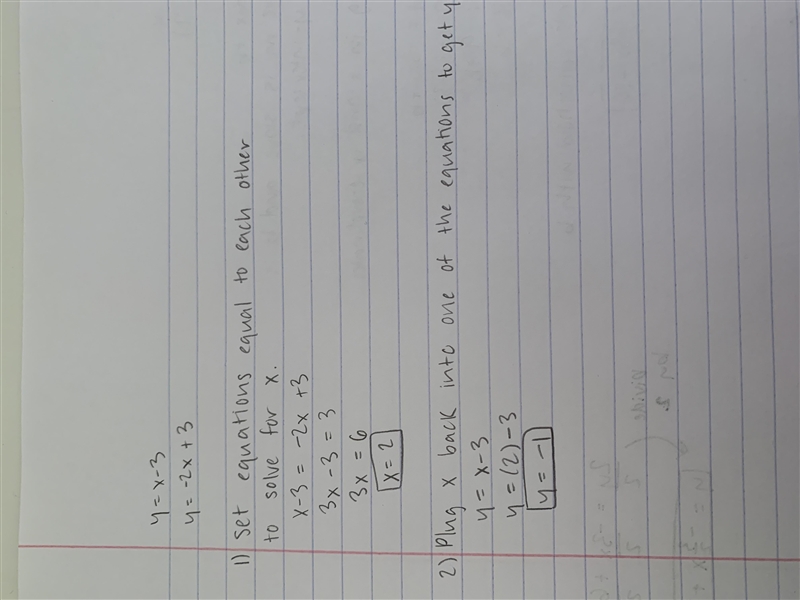 y = x-3
y = -2x + 3
1) Set equations equal to each other
to solve for x.
x-3 = -2x +3
3x - 3 = 3
3x = 6
x = 2
2) Plug x back into one of the equations to get y
y = x-3
y = (2) - 3
y = -1